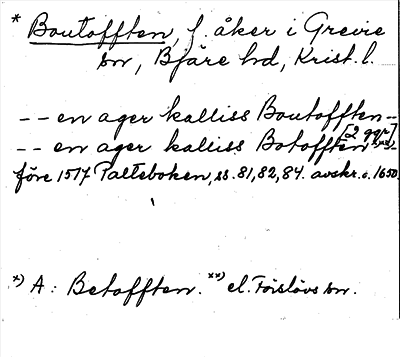 * Boutofften, f. åker i Grevie
sn, Bjäre hd, Krist. l.
-- en ager kalliss Boutofften --
[2 ggr]
-- en ager kalliss Botofften **) --
före 1517 Palteboken, ss. 81, 82, 84. avskr. c. 1650.
*) A: Betofften. **) el. Förslövs sn.